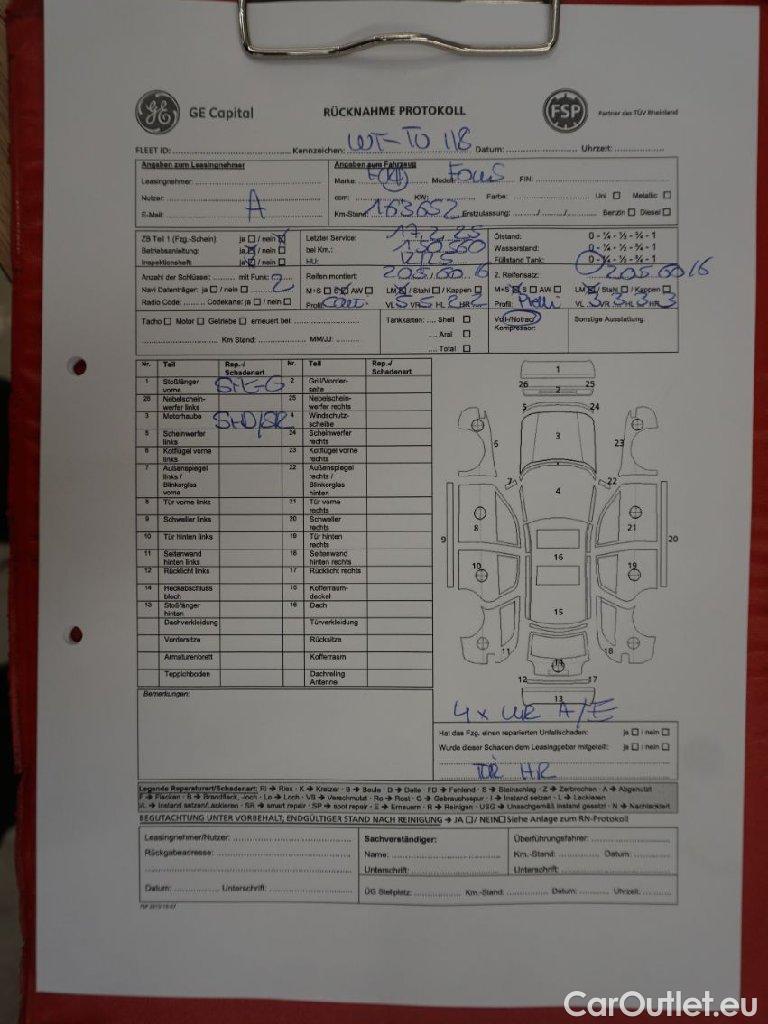 GE Capital
RÜCKNAHME PROTOKOLL
FSP
Partner des TÜV Rheinland
FLEET ID: Kennzeichen: WT-TU 118 Datum: Uhrzeit:
Angaben zum Leasingnehmer
Angaben zum Fahrzeug
Leasingnehmer:
Marke: Modell: Focus FIN:
Nutzer: A
ccm: KW: Farbe: Uni □ Metallic □
E-Mail:
Km-Stand: 163652 Erstzulassung: Benzin □ Diesel □
ZB Teil 1 (Fzg.-Schein) ja □ / nein ☒
Letzter Service:
Ölstand: 0 - ¼ - ½ - ¾ - 1
Betriebsanleitung: ja ☒ / nein □
bei Km.:
Wasserstand: 0 - ¼ - ½ - ¾ - 1
Inspektionsheft: ja ☒ / nein □
HU:
Füllstand Tank: 0 - ¼ - ½ - ¾ - 1
Anzahl der Schlüssel: mit Funk: 2
Reifen montiert: 205.60 16
2. Reifensatz: 205.60 16
Navi Datenträger: ja □ / nein □
M+S □ S ☒ AW □ LM ☒ / Stahl □ / Kappen □
M+S ☒ S □ AW □ LM ☒ / Stahl □ / Kappen □
Radio Code: Codekarte: ja □ / nein □
Profil: Conti VL 5 VR 5 HL 2 HR 2
Profil: Pirelli VL 3 VR 3 HL 3 HR 3
Tacho □ Motor □ Getriebe □ erneuert bei
Km Stand: MM/JJ:
Tankkarten: Shell □
Aral □
Total □
Voll-/Notrad
Kompressor:
Sonstige Ausstattung:
Nr. Teil Rep.-/ Schadenart Nr. Teil Rep.-/ Schadenart
1 Stoßfänger vorne 2 Grill/Vorderseite
26 Nebelscheinwerfer links 25 Nebelscheinwerfer rechts
3 Motorhaube 4 Windschutzscheibe
5 Scheinwerfer links 24 Scheinwerfer rechts
6 Kotflügel vorne links 23 Kotflügel vorne rechts
7 Außenspiegel links / Blinkerglas vorne 22 Außenspiegel rechts / Blinkerglas hinten
8 Tür vorne links 21 Tür vorne rechts
9 Schweller links 20 Schweller rechts
10 Tür hinten links 19 Tür hinten rechts
11 Seitenwand hinten links 18 Seitenwand hinten rechts
12 Rücklicht links 17 Rücklicht rechts
14 Heckabschluss blech 15 Kofferraumdeckel
13 Stoßfänger hinten 16 Dach
Dachverkleidung Türverkleidung
Vordersitze Rücksitze
Armaturenbrett Kofferraum
Teppichboden Dachreling Antenne
Bemerkungen:
1
26 2 25
5 24
6 3 23
7 22
4
8 21
9 20
10 16 19
15
11 14 18
12 17
13
4x A/E
Hat das Fzg. einen reparierten Unfallschaden: ja □ / nein □
Wurde dieser Schaden dem Leasinggeber mitgeteilt: ja □ / nein □
TÜR HR
Legende Reparaturart/Schadenart: RI → Riss · K → Kratzer · B → Beule D → Delle FD → Fehlend · S → Steinschlag · Z → Zerbrochen · A → Abgenutzt
F → Flecken · B → Brandfleck, -loch · Lo → Loch · VS → Verschmutzt · Ro → Rost · G → Gebrauchsspur · I → Instand setzen · L → Lackieren
IL → Instand setzen/Lackieren · SR → smart repair · SP → spot repair · E → Erneuern · R → Reinigen · USG → Unsachgemäß instand gesetzt · N → Nachlackiert
BEGUTACHTUNG UNTER VORBEHALT, ENDGÜLTIGER STAND NACH REINIGUNG → JA □/ NEIN □ Siehe Anlage zum RN-Protokoll
Leasingnehmer/Nutzer:
Sachverständiger:
Überführungsfahrer:
Rückgabeadresse:
Name:
Km.-Stand: Datum:
Unterschrift:
Unterschrift:
Datum: Unterschrift:
ÜG Stellplatz: Km.-Stand: Datum: Uhrzeit:
CarOutlet.eu